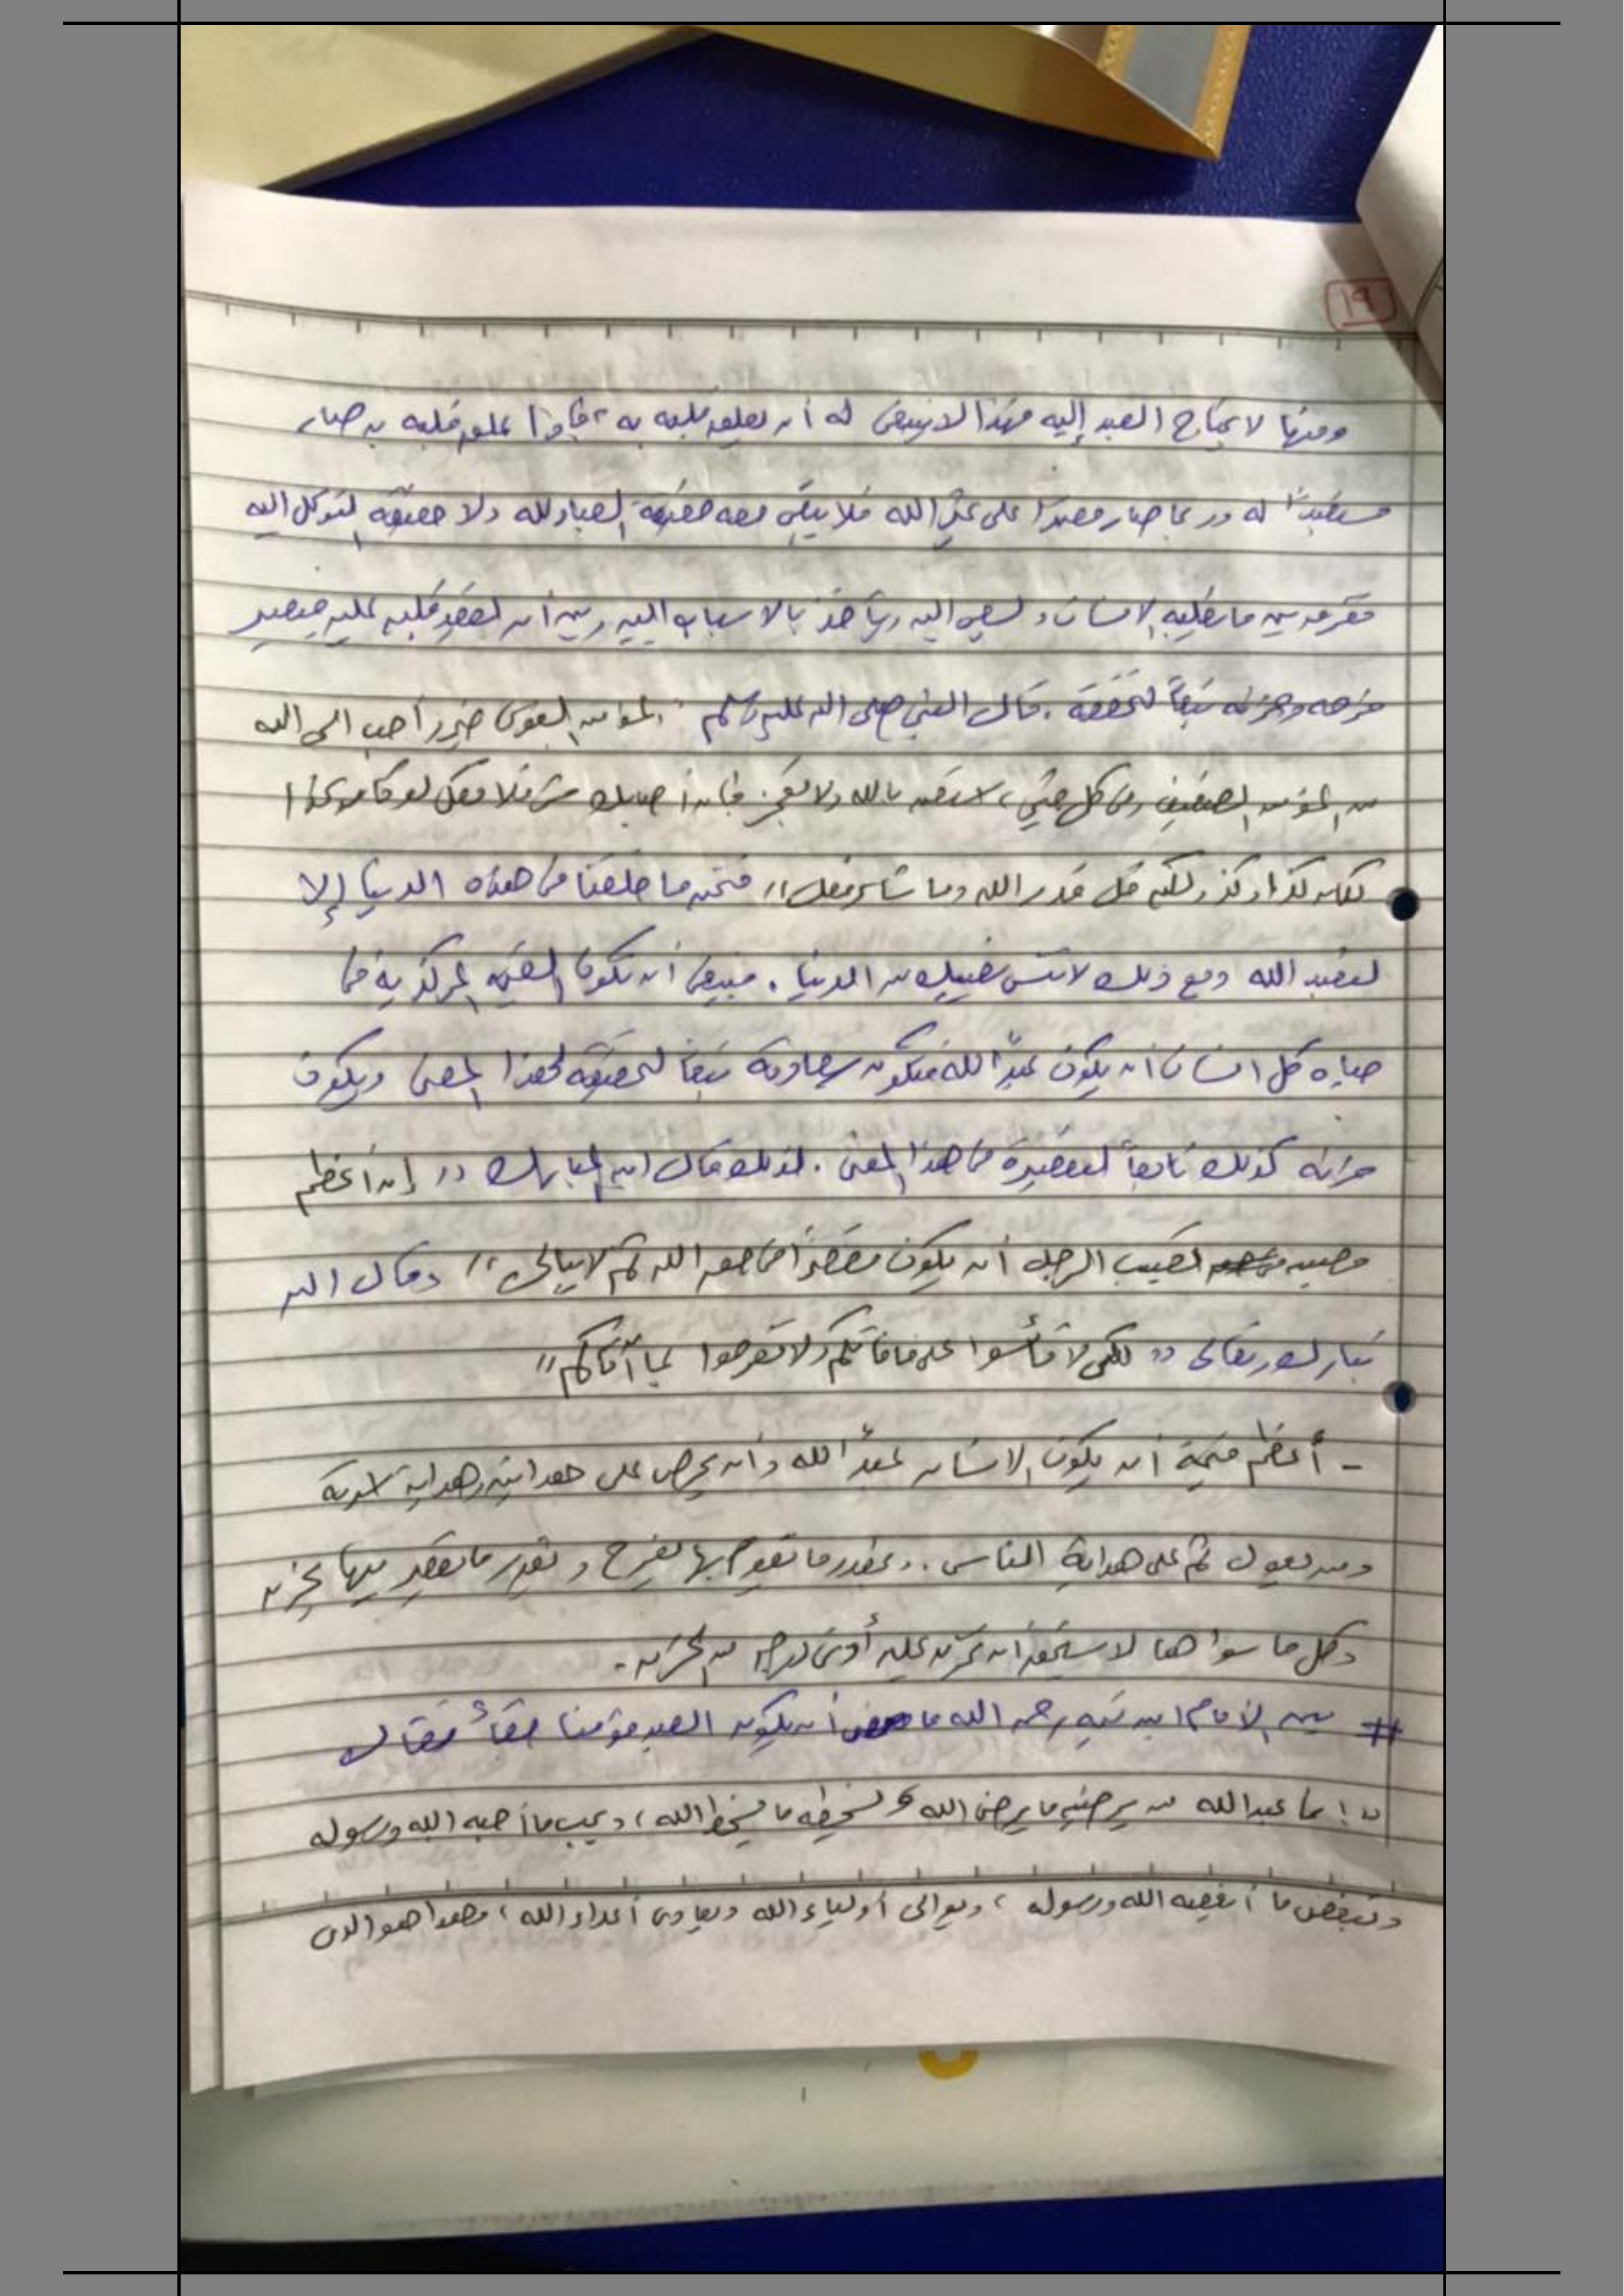 ١٩
ومنها لا يحتاج العبد إليه فهذا لا ينبغى له أن يعلق قلبه به ، فإذا علق قلبه به صار
مستعبداً له وربما صار معتمدا على غير الله فلا يبقى معه حقيقة العباد لله ولا حقيقة التوكل اليه
ففرق بين ما يطلبه الانسان ويسعى اليه ويأخذ بالاسباب اليه وبين أن يعقد قلبه عليه فيصير
فرحه وحزنه تبعاً لتحققه . قال النبي صلى الله عليه وسلم : المؤمن القوى خير وأحب الى الله
من المؤمن الضعيف وفى كل خير ، استعن بالله ولا تعجز فإن أصابك شئ فلا تقل لو كان كذا
لكان كذا وكذا ولكن قل قدر الله وما شاء فعل " فنحن ما خلقنا فى هذه الدنيا إلا
لنعبد الله ومع ذلك لا تنس نصيبك من الدنيا . فينبغى أن تكون القيمة المركزية فى
حياه كل انسان أن يكون عبداً لله فتكون سعادته تبعاً لتحقيقه لهذا المعنى ويكون
حزنه كذلك تابعاً لتقصيره فى هذا المعنى . لذلك قال ابن المبارك " إن أعظم
مصيبه تصيب الرجل أن يكون مقصراً فى حق الله ثم لا يبالى " وقال الله
تبارك وتعالى " لكى لا تأسوا على ما فاتكم ولا تفرحوا بما آتاكم "
- أعظم قيمة أن يكون الانسان عبداً لله وأن يحرص على هدايته وهداية اسرته
ومن يعول ثم على هداية الناس . وبقدر ما تقوم بها تفرح وبقدر ما تقصر فيها تحزن
وكل ما سواها لا يستحق أن تحزن عليه أدنى درجه من الحزن .
# بين الامام ابن تيميه رحمه الله ما معنى أن يكون العبد مؤمنا حقاً فقال
" إنما عبد الله من يرضيه ما يرضى الله ويسخطه ما يسخط الله ، ويحب ما أحبه الله ورسوله
ويبغض ما أبغضه الله ورسوله ، ويوالى أولياء الله ويعادى أعداء الله ، فهذا هو الذى